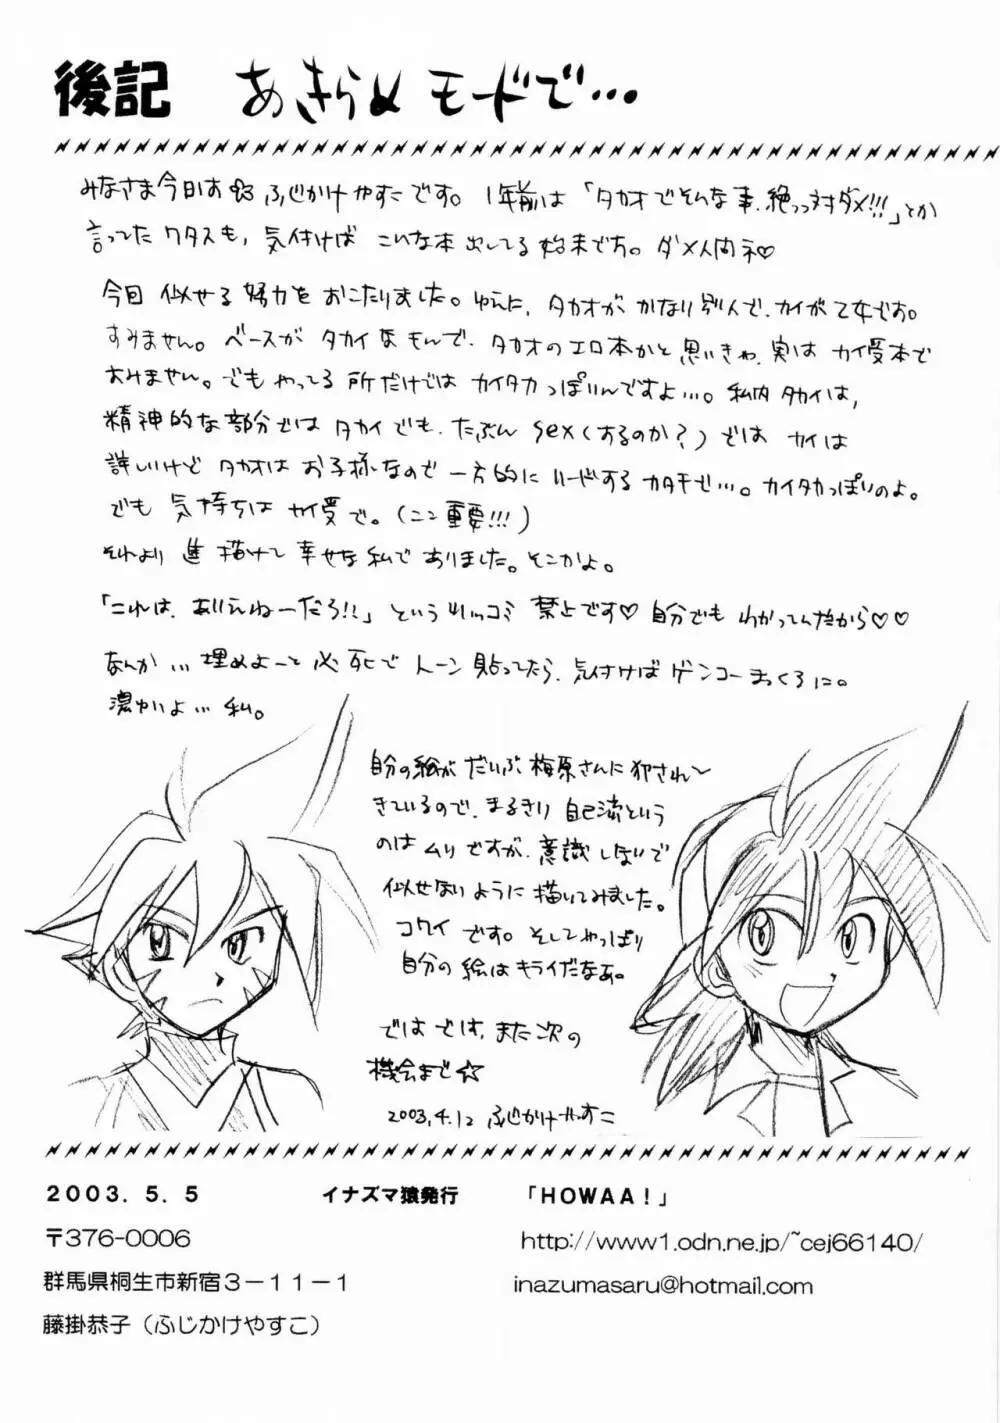 後記 あきらめモードで…
みなさま今日わ ふじかけやすこです。1年前は「タカオでそんな事、絶っっ対ダメ!!!」とか
言ってたワタスも、気付けば こんな本出してる始末です。ダメ人間ネ♡
今回 似せる努力をおこたりました。ゆえに、タカオがかなり別人で、カイが乙女です。
すみません。ベースがタカイなもんで、タカオのエロ本かと思いきや、実は カイ受本で
すみません。でもやってる所だけでは カイタカっぽいんですよ…。私内タカイは、
精神的な部分ではタカイでも、たぶん sex(するのか?)では カイは
詳しいけど タカオはお子様なので一方的にリードするカタチで…。カイタカっぽいのよ。
でも 気持ちは カイ受で。(ココ重要!!!)
それより 進 描けて 幸せな私でありました。そこかよ。
「これは、ありえねーだろ!!」というツッコミ 禁止です♡ 自分でも わかってんだから♡♡
なんか…埋めよーと必死でトーン貼ってたら、気付けばゲンコーまっくろに。
濃かいよ…私。
自分の絵が だいぶ 梅原さんに犯され〜
きているので、まるきり 自己流という
のは ムリですが、意識しないで
似せないように描いてみました。
コワイです。そしてやっぱり
自分の絵はキライだなぁ。
ではでは、また次の
機会まで☆
2003.4.12 ふじかけやすこ
2003.5.5 イナズマ猿発行 「HOWAA!」
〒376-0006 http://www1.odn.ne.jp/~cej66140/
群馬県桐生市新宿3-11-1 inazumasaru@hotmail.com
藤掛恭子(ふじかけやすこ)